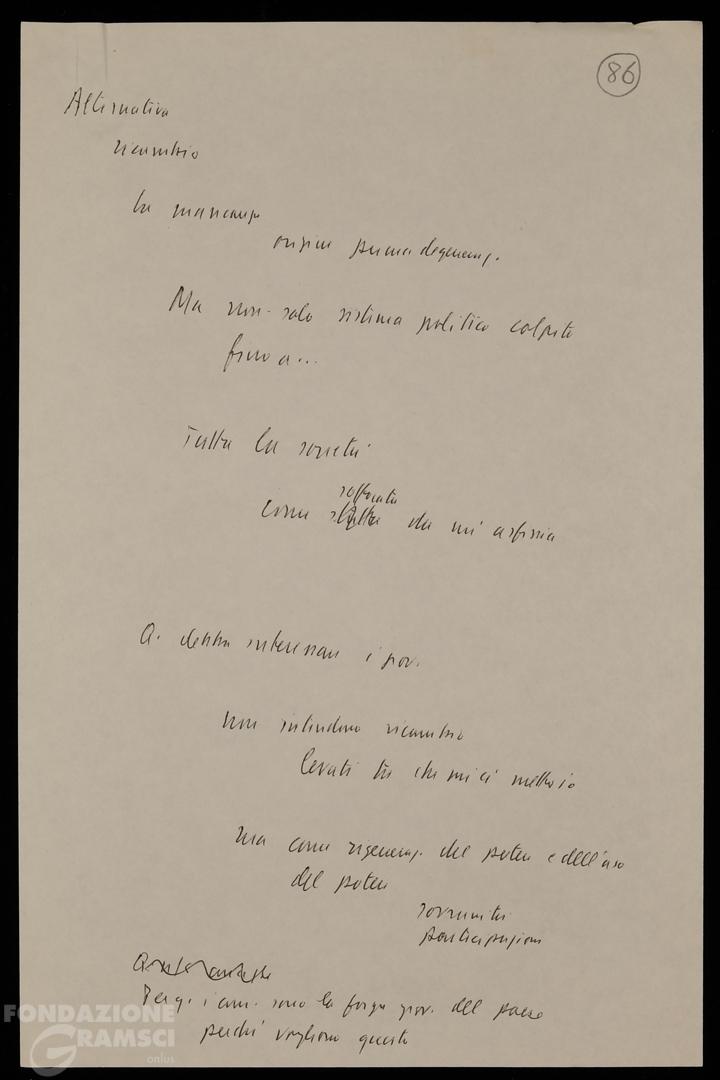 86
Alternativa
ricambio
la mancanza
origine prima degeneraz.
Ma non solo sistema politico colpito
fino a...
Tutta la società
come soffocata da un' asfissia
A. deve interessare i giov.
non intendono ricambio
levati tu che mi ci metto io
ma come rigeneraz. del potere e dell'uso
del potere
sovranità
partecipazione
Perché i com. sono la forza giov. del paese
perché vogliono questo
FONDAZIONE
GRAMSCI
onlus